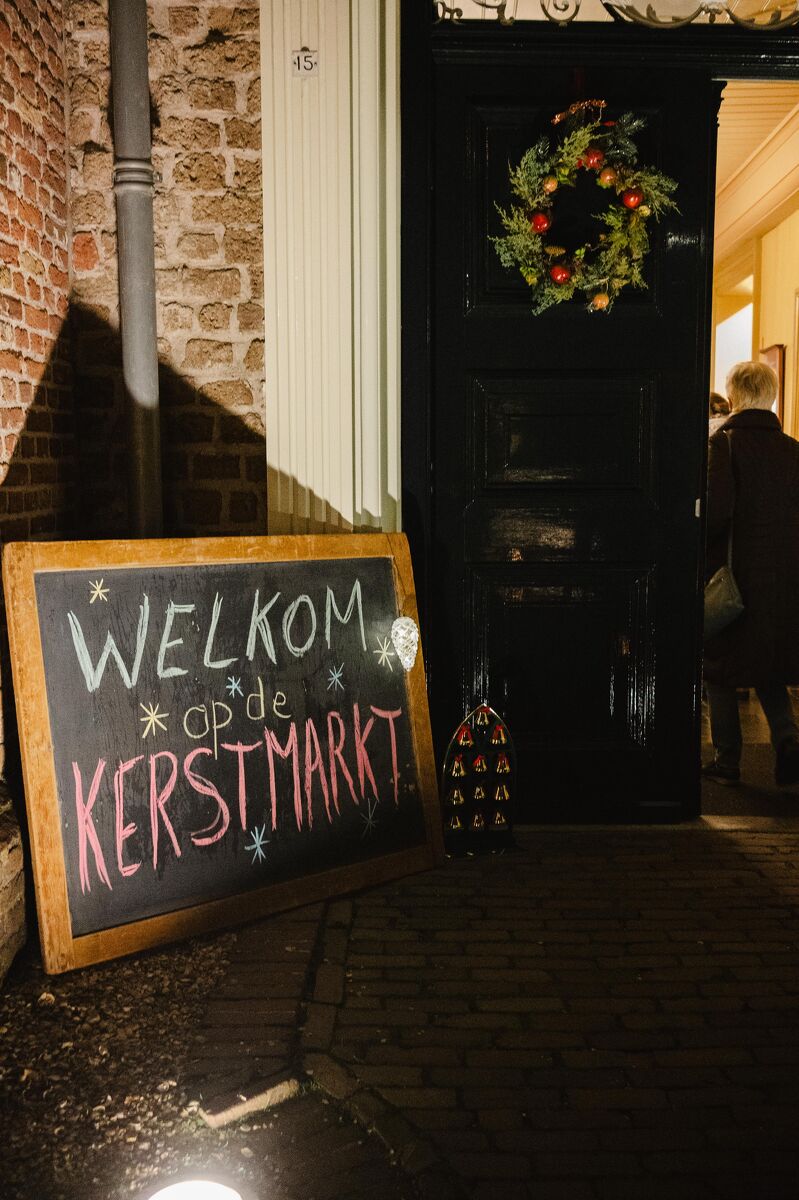 15
WELKOM
op de
KERSTMARKT